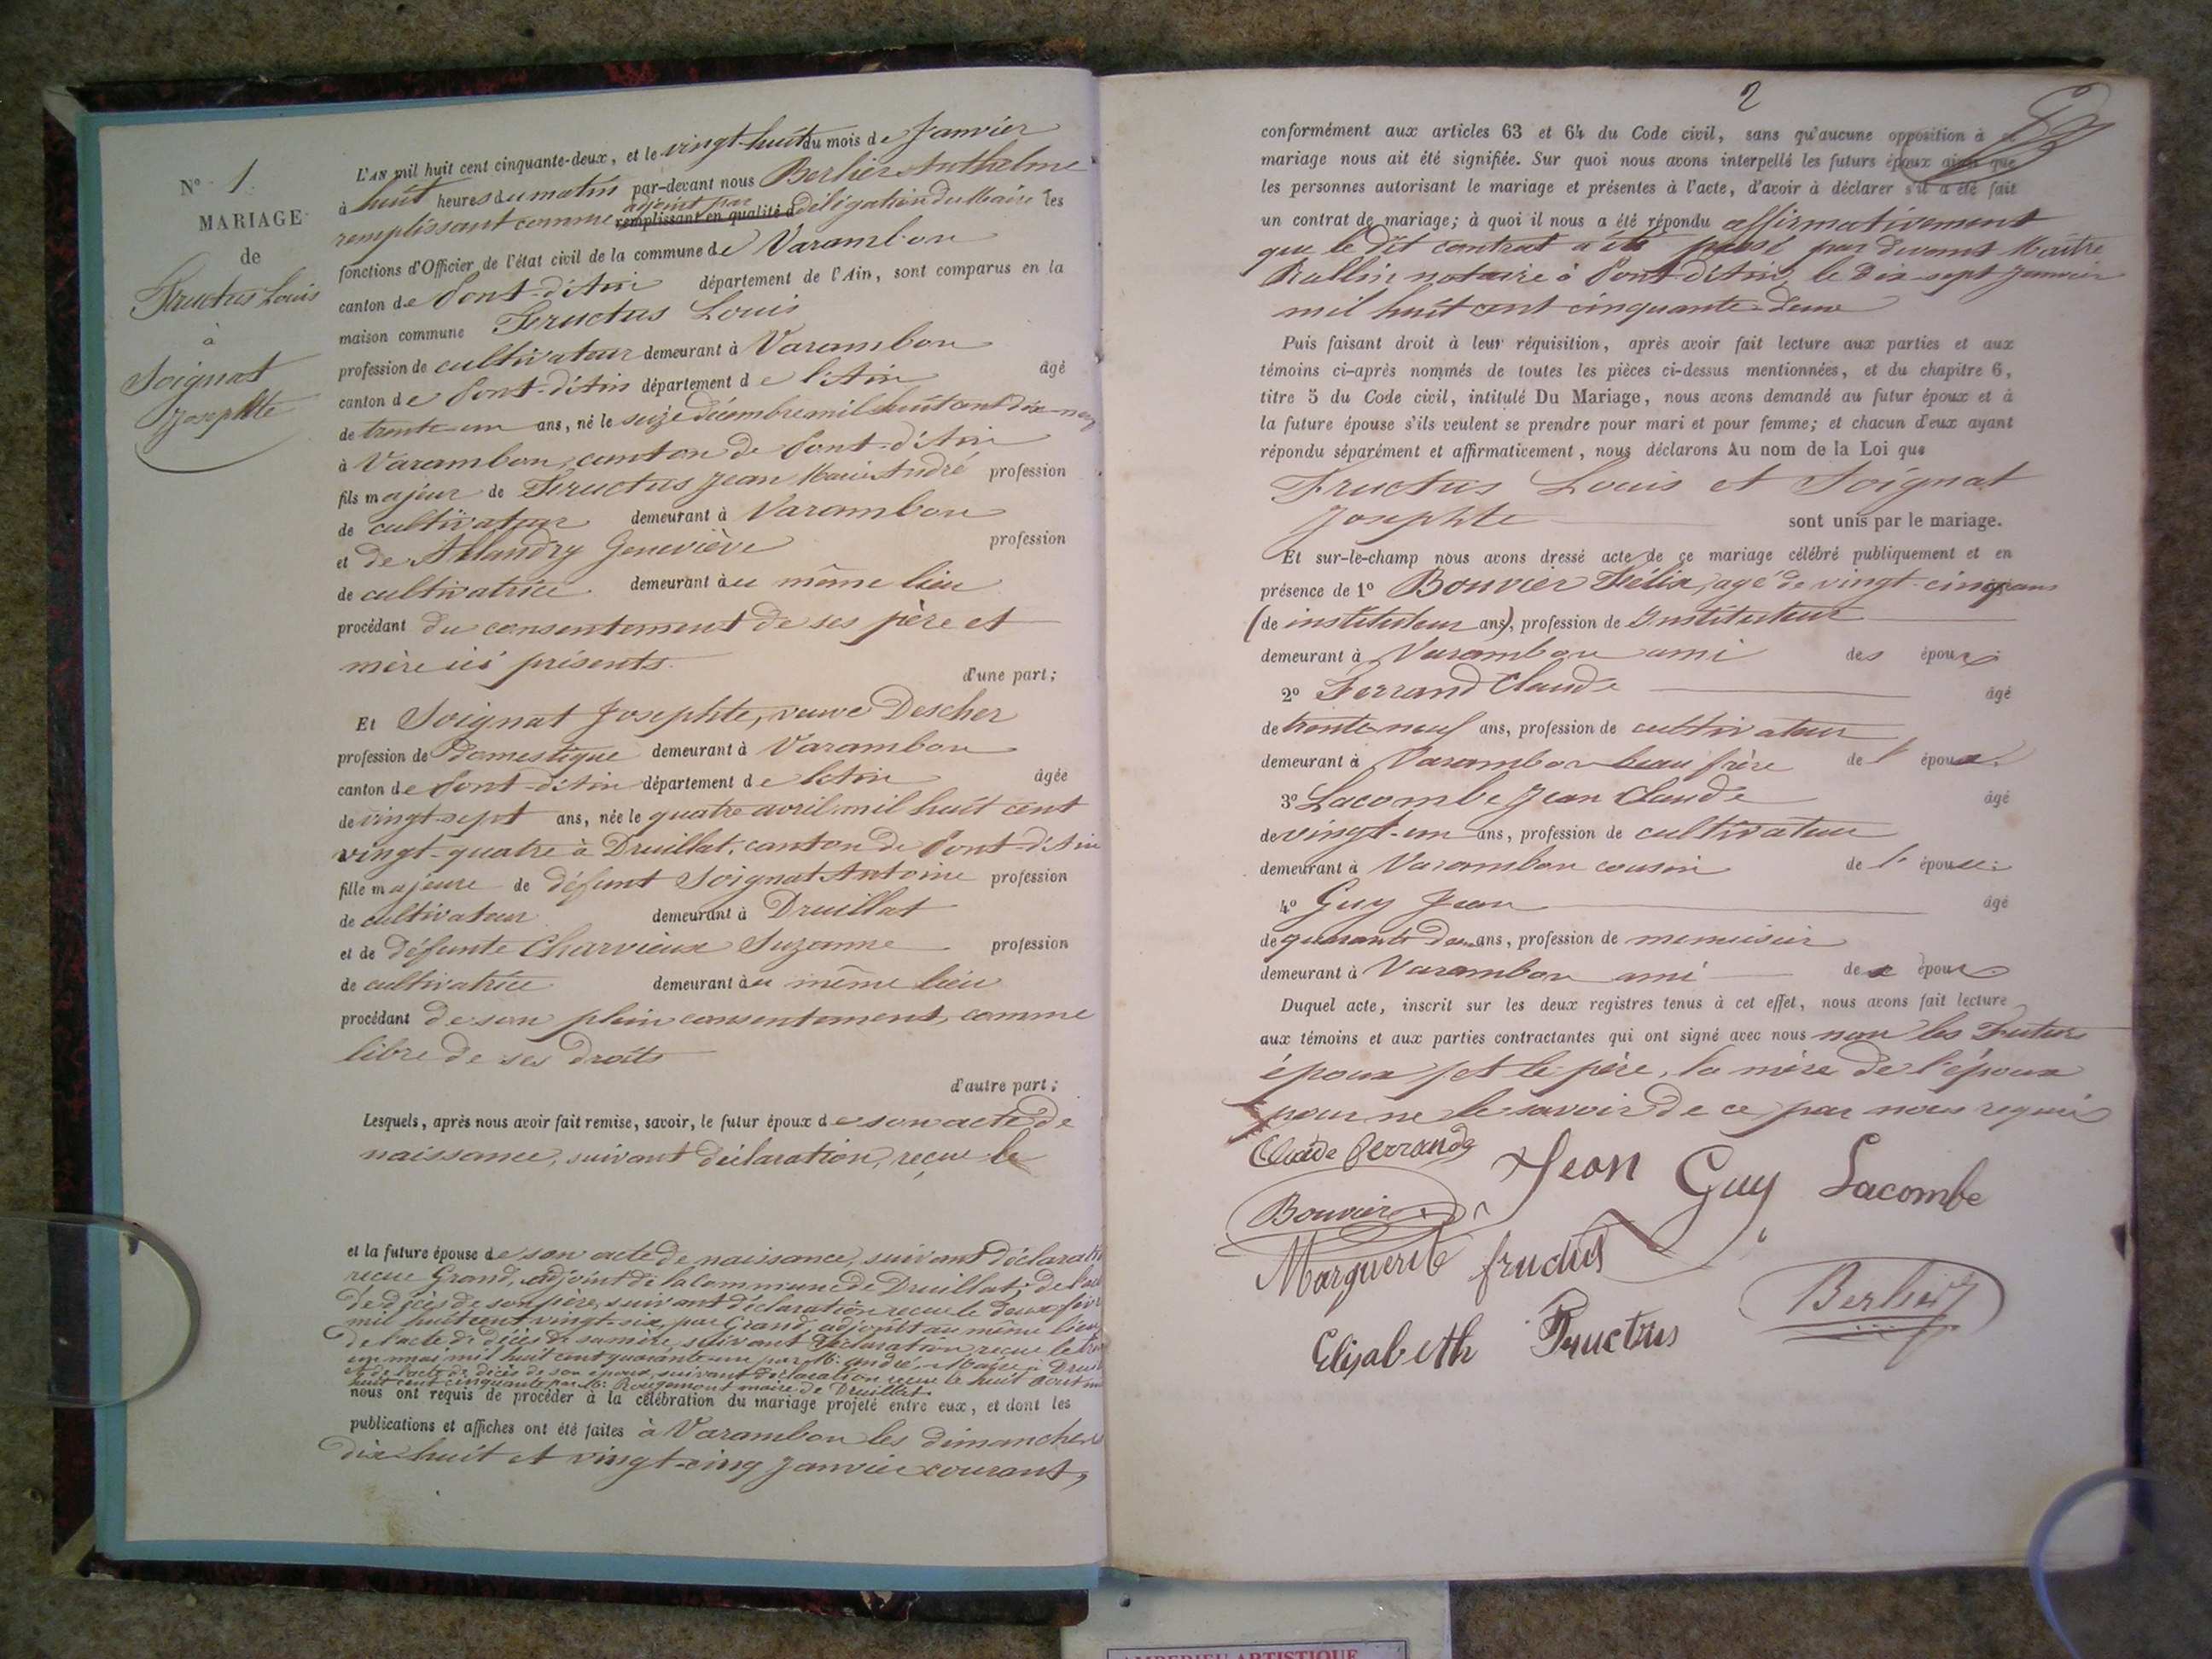 N° 1.
MARIAGE
de
Fructus Louis
à
Soignat
Josephte
L'AN mil huit cent cinquante-deux, et le vingt-huit du mois de Janvier
à huit heures du matin par-devant nous Berlier Anthelme
adjoint par
remplissant comme remplissant en qualité d délégation du Maire les
fonctions d'Officier de l'état civil de la commune de Varambon
canton de Pont-d'Ain département de l'Ain, sont comparus en la
maison commune Fructus Louis
profession de cultivateur demeurant à Varambon
canton de Pont-d'Ain département de l'Ain âgé
de trente-un ans, né le seize décembre mil huit cent dix-neuf
à Varambon, canton de Pont-d'Ain
fils majeur de Fructus Jean Marie André profession
de cultivateur demeurant à Varambon
et de Allandry Geneviève profession
de cultivatrice demeurant au même lieu
procédant du consentement de ses père et
mère ici présents.
d'une part;
Et Soignat Josephte, veuve Descher
profession de Domestique demeurant à Varambon
canton de Pont-d'Ain département de l'Ain âgée
de vingt-sept ans, née le quatre avril mil huit cent
vingt-quatre à Druillat, canton de Pont-d'Ain
fille majeure de défunt Soignat Antoine profession
de cultivateur demeurant à Druillat
et de défunte Charvieux Suzanne profession
de cultivatrice demeurant au même lieu
procédant de son plein consentement, comme
libre de ses droits
d'autre part;
Lesquels, après nous avoir fait remise, savoir, le futur époux de son acte de
naissance, suivant déclaration, reçue le
et la future épouse de son acte de naissance, suivant déclaration
reçue Grand, adjoint de la Commune de Druillat; de l'acte
de décès de son père, suivant déclaration reçue le deux
mil huit cent vingt-six, par Grand, adjoint au même lieu
de l'acte de décès de sa mère, suivant déclaration reçue le
un mai mil huit cent quarante-un par Mr. André, Maire à
et de l'acte de décès de son époux, suivant déclaration reçue le huit août mil
huit cent cinquante, par Mr. Rougemont maire de Druillat.
nous ont requis de procéder à la célébration du mariage projeté entre eux, et dont les
publications et affiches ont été faites à Varambon les dimanches
dix-huit et vingt-cinq Janvier courant,
2
conformément aux articles 63 et 64 du Code civil, sans qu'aucune opposition à ce
mariage nous ait été signifiée. Sur quoi nous avons interpellé les futurs époux ainsi que
les personnes autorisant le mariage et présentes à l'acte, d'avoir à déclarer s'il a été fait
un contrat de mariage; à quoi il nous a été répondu affirmativement
que le dit contrat a été passé par devant Maître
Rullin notaire à Pont-d'Ain, le dix-sept Janvier
mil huit cent cinquante-deux
Puis faisant droit à leur réquisition, après avoir fait lecture aux parties et aux
témoins ci-après nommés de toutes les pièces ci-dessus mentionnées, et du chapitre 6,
titre 5 du Code civil, intitulé Du Mariage, nous avons demandé au futur époux et à
la future épouse s'ils veulent se prendre pour mari et pour femme; et chacun d'eux ayant
répondu séparément et affirmativement, nous déclarons Au nom de la Loi que
Fructus Louis et Soignat
Josephte sont unis par le mariage.
Et sur-le-champ nous avons dressé acte de ce mariage célébré publiquement et en
présence de 1° Bouvier Félix, agé de vingt-cinq ans
(de instituteur ans), profession de Instituteur
demeurant à Varambon ami des époux.
2° Ferrand Claude âgé
de trente-neuf ans, profession de cultivateur
demeurant à Varambon beau frère de l' époux.
3° Lacombe Jean Claude âgé
de vingt-un ans, profession de cultivateur
demeurant à Varambon cousin de l' époux;
4° Guy Jean âgé
de quarante deux ans, profession de menuisier
demeurant à Varambon ami des époux.
Duquel acte, inscrit sur les deux registres tenus à cet effet, nous avons fait lecture
aux témoins et aux parties contractantes qui ont signé avec nous non les Futurs
époux, et le père, la mère de l'époux
pour ne le savoir de ce par nous requis
Claude Ferrand
Jean Guy Lacombe
Bouvier
Marguerite fructus
Berlier
Elisabeth Fructus
AMBERIEU ARTISTIQUE